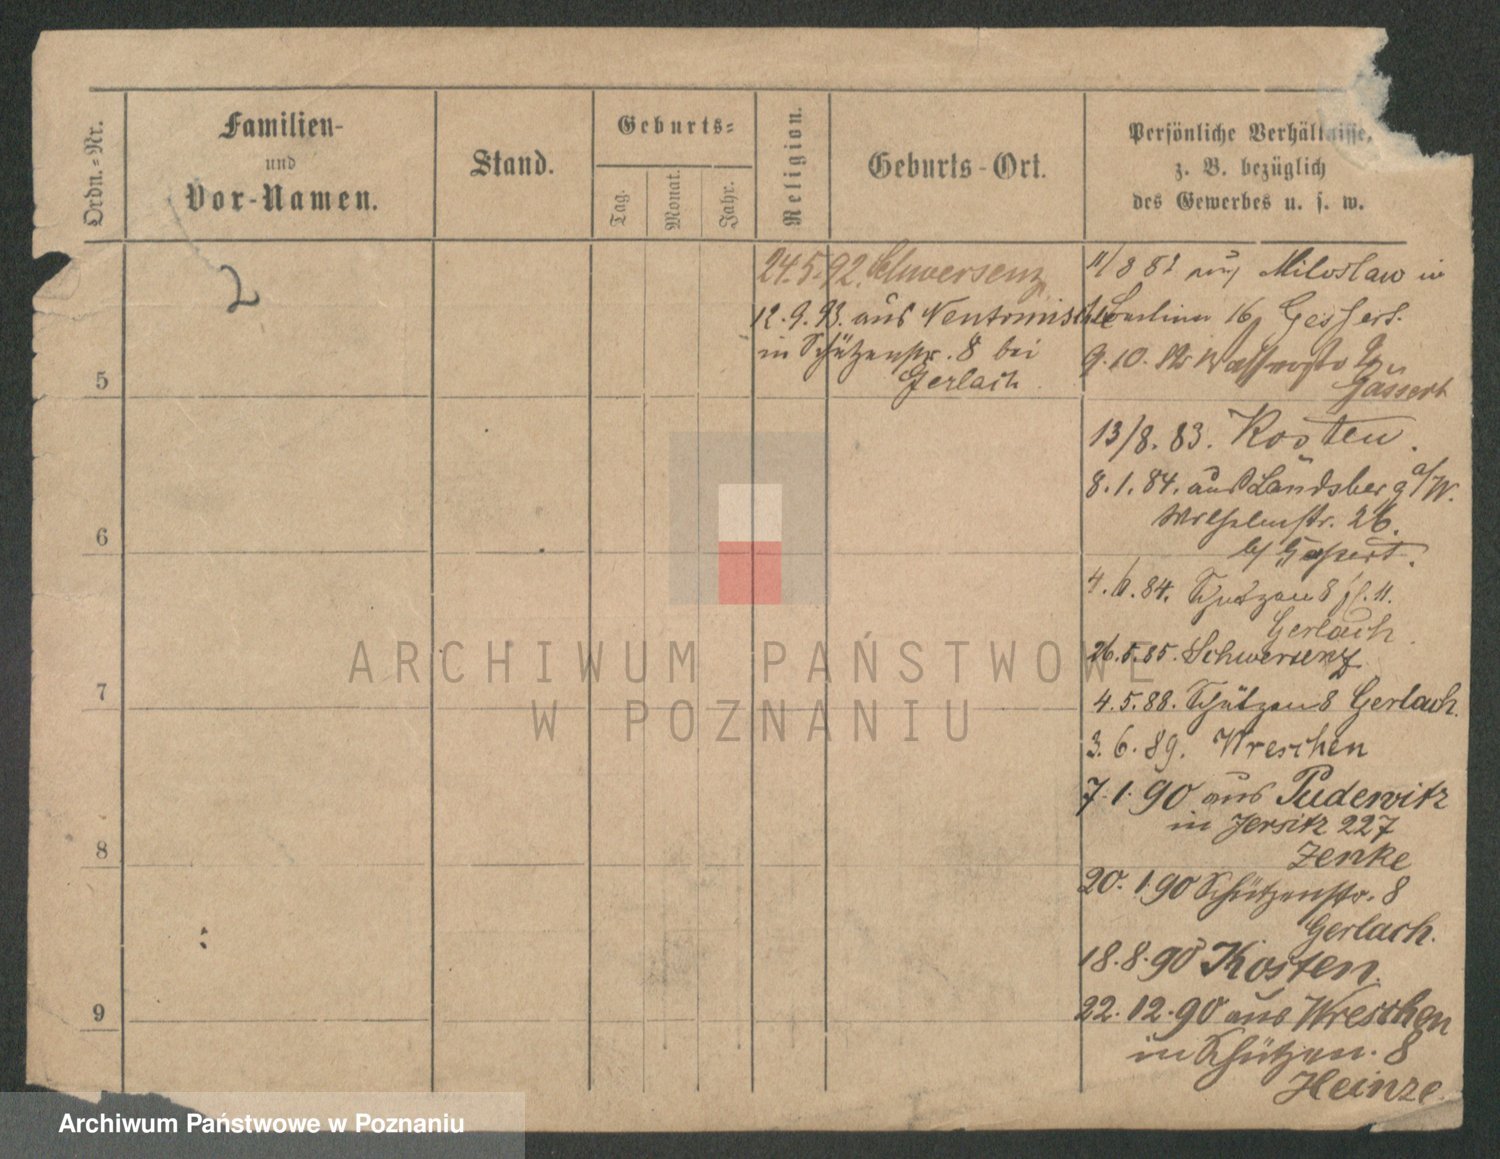 Ordn.=Nr.
Familien-
und
Vor-Namen.
Stand.
Geburts=
Tag.
Monat.
Jahr.
Religion.
Geburts-Ort.
Persönliche Verhältnisse,
z. B. bezüglich
des Gewerbes u. s. w.
2
5
6
7
8
9
24.5.92. Schwersenz
12.9.93. aus Neutomischel
in Schützenstr. 8 bei
Gerlach.
11/8 82 Miloslaw in
16
9.10.
13/8. 83. Kosten.
8.1.84. aus Landsberg a/W.
Wilhelmstr. 26.
84. Schützen 8
Gerlach.
26.5.85. Schwersenz
4.5.88. Schützen 8 Gerlach.
3.6.89. Wreschen
7.1.90 aus Pudewitz
in Jersitz 227
Zenke
20.1.90 Schützenstr. 8
Gerlach.
18.8.90 Kosten.
22.12.90 aus Wreschen
in Schützen. 8
Heinze.
ARCHIWUM PAŃSTWOWE
W POZNANIU
Archiwum Państwowe w Poznaniu